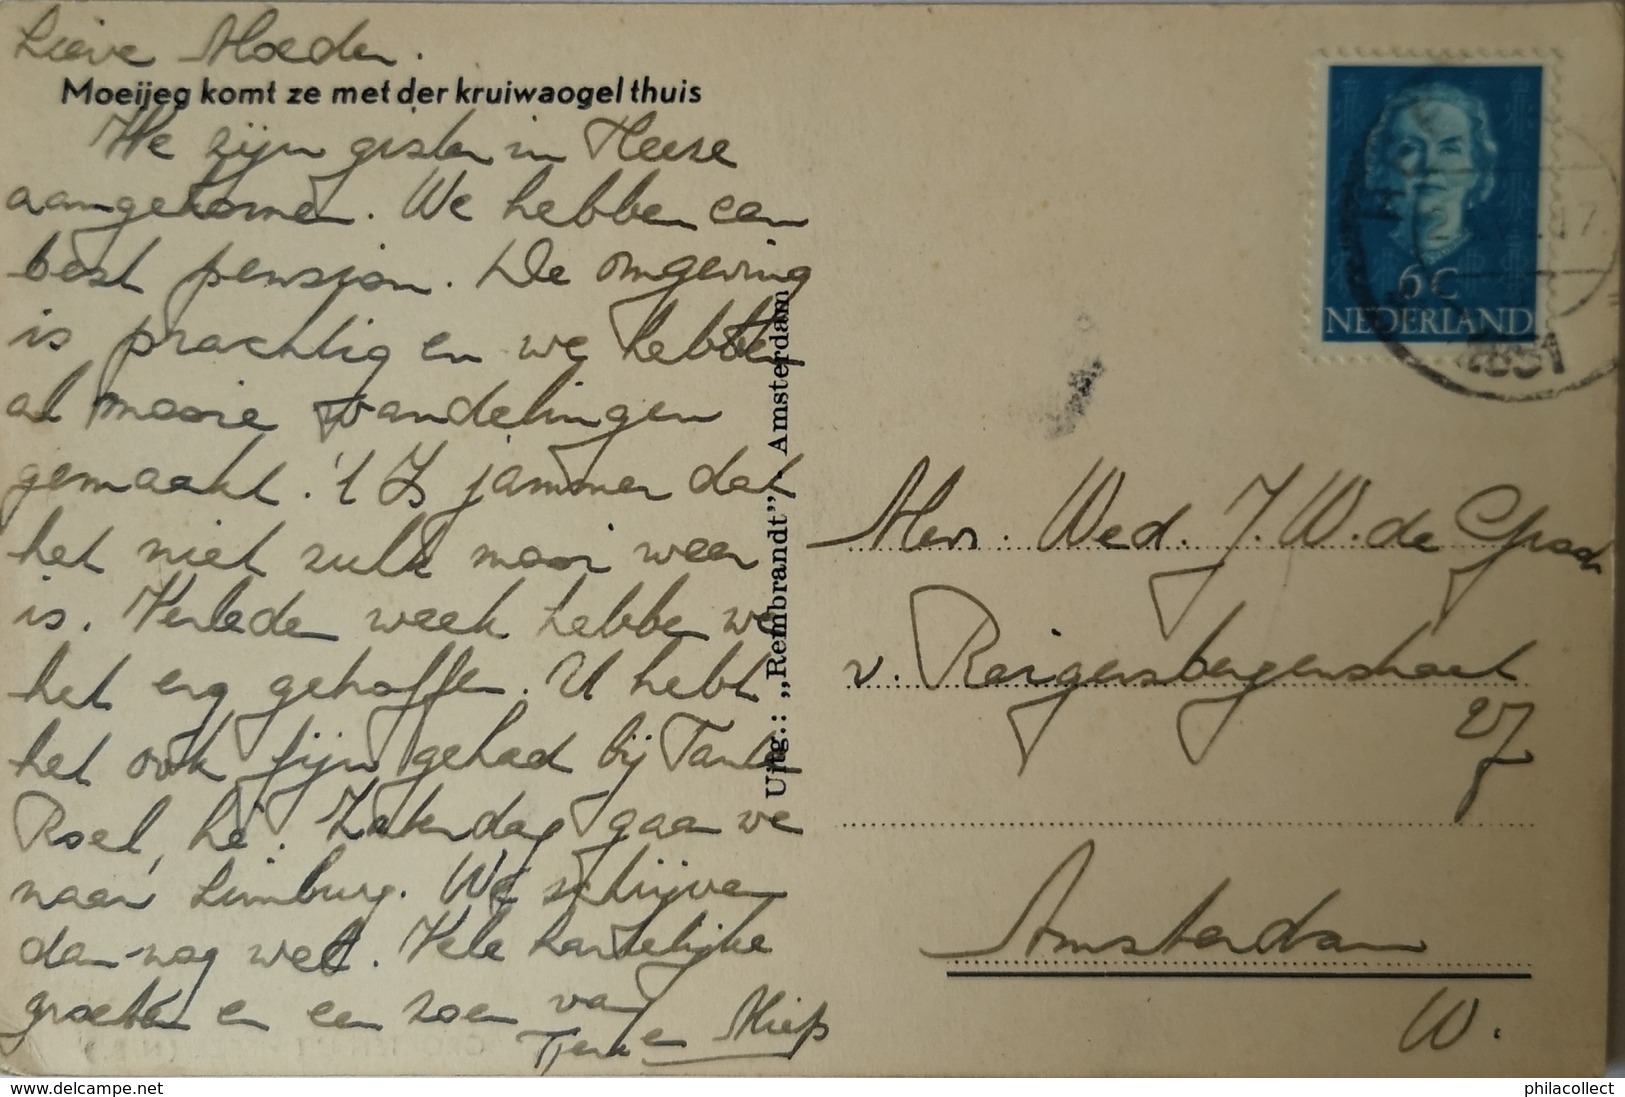 Lieve Moeder.
Moeijeg komt ze met der kruiwaogel thuis
We zijn gister in Heeze
aangekomen. We hebben een
best pension. De omgeving
is prachtig en we hebben
al mooie wandelingen
gemaakt. 't Is jammer dat
het niet zulk mooi weer
is. Verleden week hebben we
het erg getroffen. U hebt
het ook fijn gehad bij Tante
Roel, hè. Zaterdag gaan we
naar Limburg. We schrijven
dan nog wel. Vele hartelijke
groeten en een zoen van
en Miep
Uitg.: „Rembrandt" - Amsterdam
6 C
NEDERLAND
1951
Mevr. Wed. J. W. de
v. Reigersbergenstraat
Amsterdam
W.
delcampe.net
philacollect